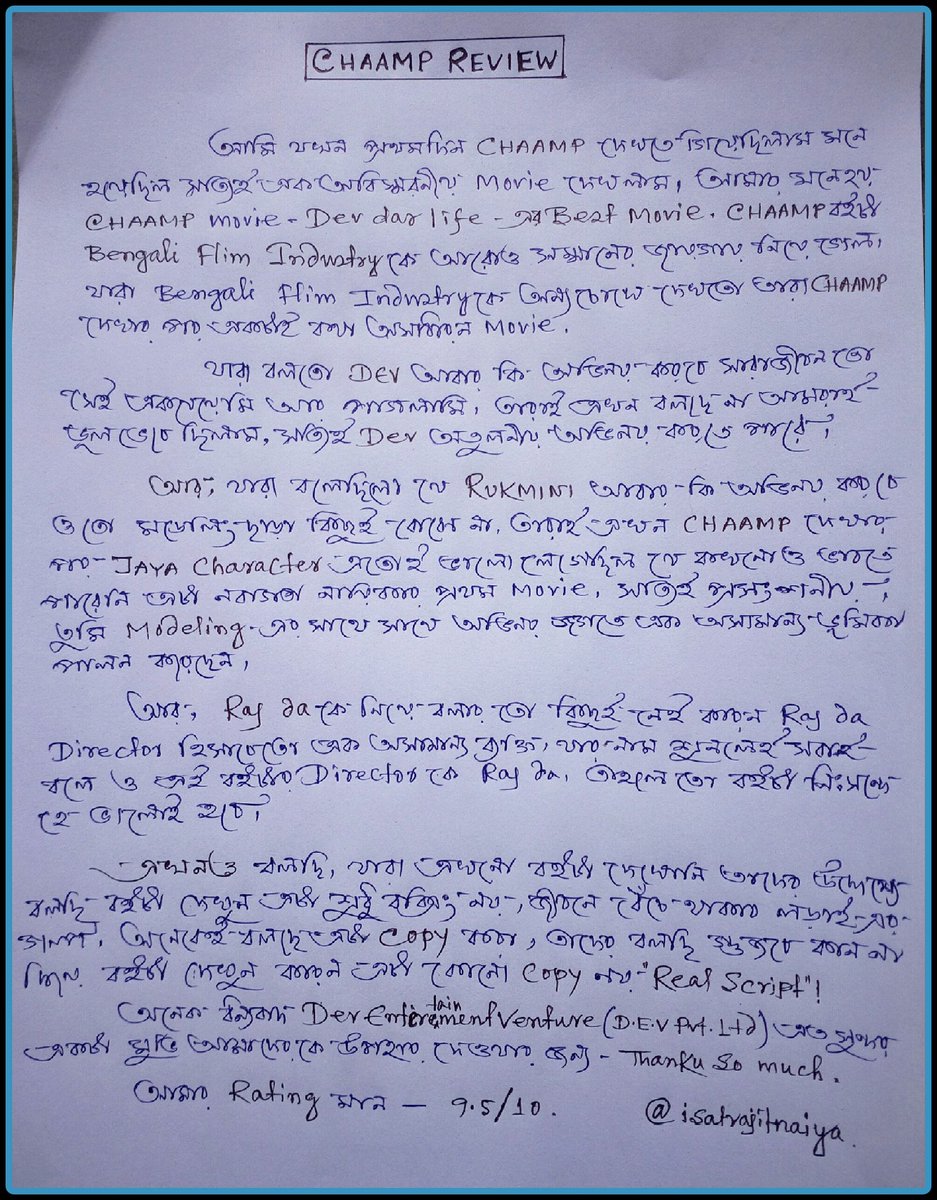 CHAAMP REVIEW
আমি যখন প্রথমদিন CHAAMP দেখতে গিয়েছিলাম মনে
হয়েছিল সত্যিই এক অবিস্মরনীয় Movie দেখলাম, আমার মনে হয়
CHAAMP movie - Dev dar life - এর Best Movie. CHAAMP বইটা
Bengali Flim Industry কে আরোও সম্মানের জায়গায় নিয়ে গেল।
যারা Bengali Flim Industry কে অন্য চোখে দেখতো তারা CHAAMP
দেখার পর একটাই কথা অসাধারন Movie.
যারা বলতো Dev আবার কি অভিনয় করবে সারাজীবন তো
সেই একঘেয়েমি আর পাগলামি, তারাই এখন বলছে না আমরাই
ভুল ভেবেছিলাম, সত্যিই Dev অতুলনীয় অভিনয় করতে পারে,
আর, যারা বলেছিলো যে RUKMINI আবার কি অভিনয় করবে
ও তো মডেলিং ছাড়া কিছুই বোঝে না, তারাই এখন CHAAMP দেখার
পর JAYA Character এতোই ভালো লেগেছিল যে কখনোও ভাবতে
পারেনি এটা নবাগতা নায়িকার প্রথম Movie, সত্যিই প্রসংশনীয়,
তুমি Modeling-এর সাথে সাথে অভিনয় জগতে এক অসামান্য ভূমিকা
পালন করেছেন,
আর, Raj da কে নিয়ে বলার তো কিছুই নেই কারন Raj da
Director হিসাবেতো এক অসামান্য ব্যক্তি, যার নাম শুনলেই সবাই
বলে ও এই বইটার Director কে Raj da, তাহলে তো বইটা নিঃসন্দে
হে ভালোই হবে,
এখনও বলছি, যারা এখনো বইটা দেখেননি তাদের উদ্দেশ্যে
বলছি বইটা দেখুন এটা শুধু বক্সিং নয়, জীবনে বেঁচে থাকার লড়াই-এর
গল্প, অনেকেই বলছে এটা Copy করা, তাদের বলছি গুজবে কান না
দিয়ে বইটা দেখুন কারন এটা কোনো Copy নয় "Real Script"!
অনেক ধন্যবাদ Dev Entertainment Venture (D.E.V Pvt. Ltd) এত সুন্দর
একটা মুভি আমাদেরকে উপহার দেওয়ার জন্য - Thanku So much.
আমার Rating মান — 9.5/10.
@isatyajitnaiya.